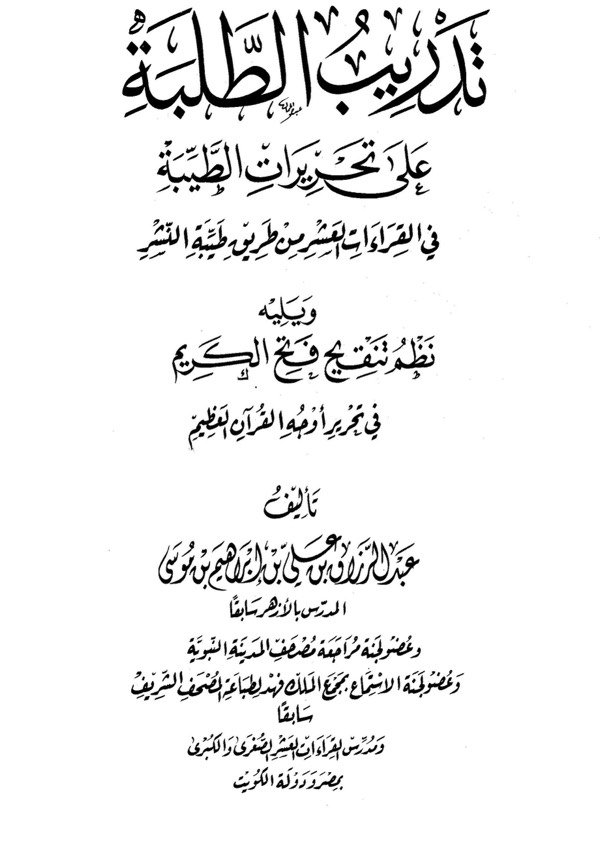 تَدْرِيبُ الطَّلَبَةِ
عَلَى تَحْرِيرَاتِ الطَّيِّبَةِ
فِي القِرَاءَاتِ العَشْرِ مِنْ طَرِيقِ طَيِّبَةِ النَّشْرِ
وَيَلِيْه
نَظْمُ تَنْقِيحِ فَتْحِ الكَرِيمِ
فِي تَحْرِيرِ أَوْجُهِ القُرْآنِ العَظِيمِ
تَأْلِيفُ
عَبْدِ الرَّزَّاقِ بْنِ عَلِيِّ بْنِ إِبْرَاهِيمَ بْنِ مُوسَى
المدَرِّس بالأزهَر سَابِقًا
وَعُضْو لَجْنَة مُرَاجَعَة مُصْحَفِ المَدِينَةِ النَّبَوِيَّةِ
وَعُضْو لَجْنَة الاسْتِمَاع بمجَمَّع الملَك فَهْد لِطِبَاعَةِ المُصْحَفِ الشَّرِيفِ
سَابِقًا
وَمُدَرِّس القِرَاءَاتِ العَشْرِ الصُّغْرَى وَالكُبْرَى
بمِصْرَ وَدَوْلَة الكُوَيْت